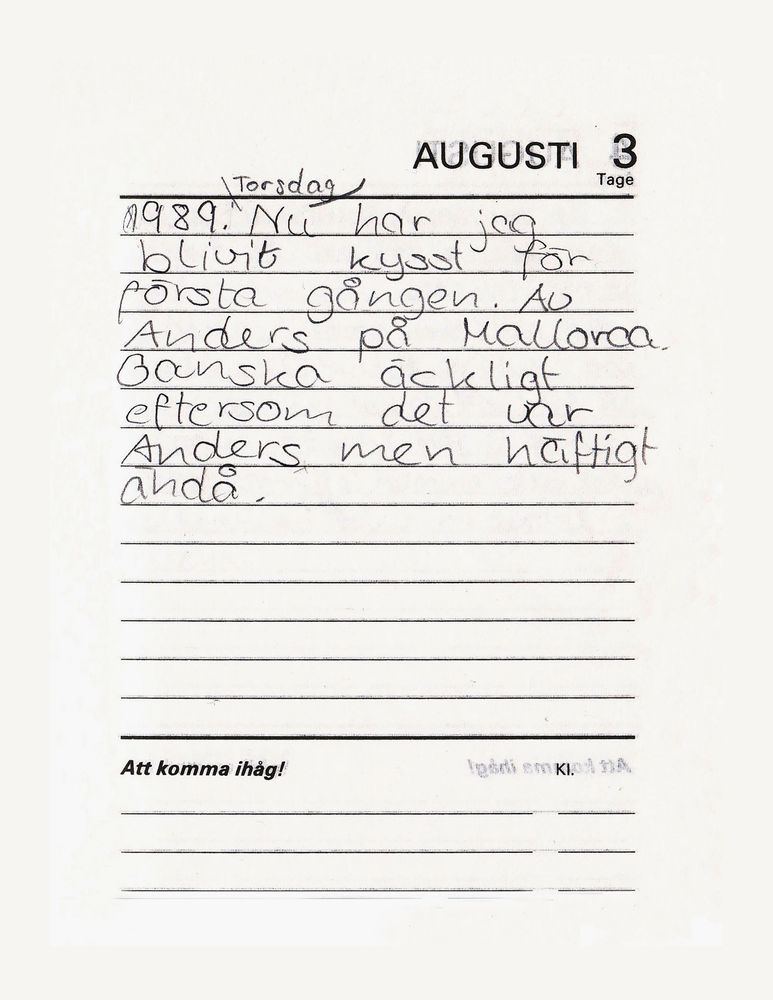 AUGUSTI 3
Tage
Torsdag
1989. Nu har jag
blivit kysst för
första gången. Av
Anders på Mallorca.
Ganska äckligt
eftersom det var
Anders men häftigt
ändå.
Att komma ihåg! Kl.